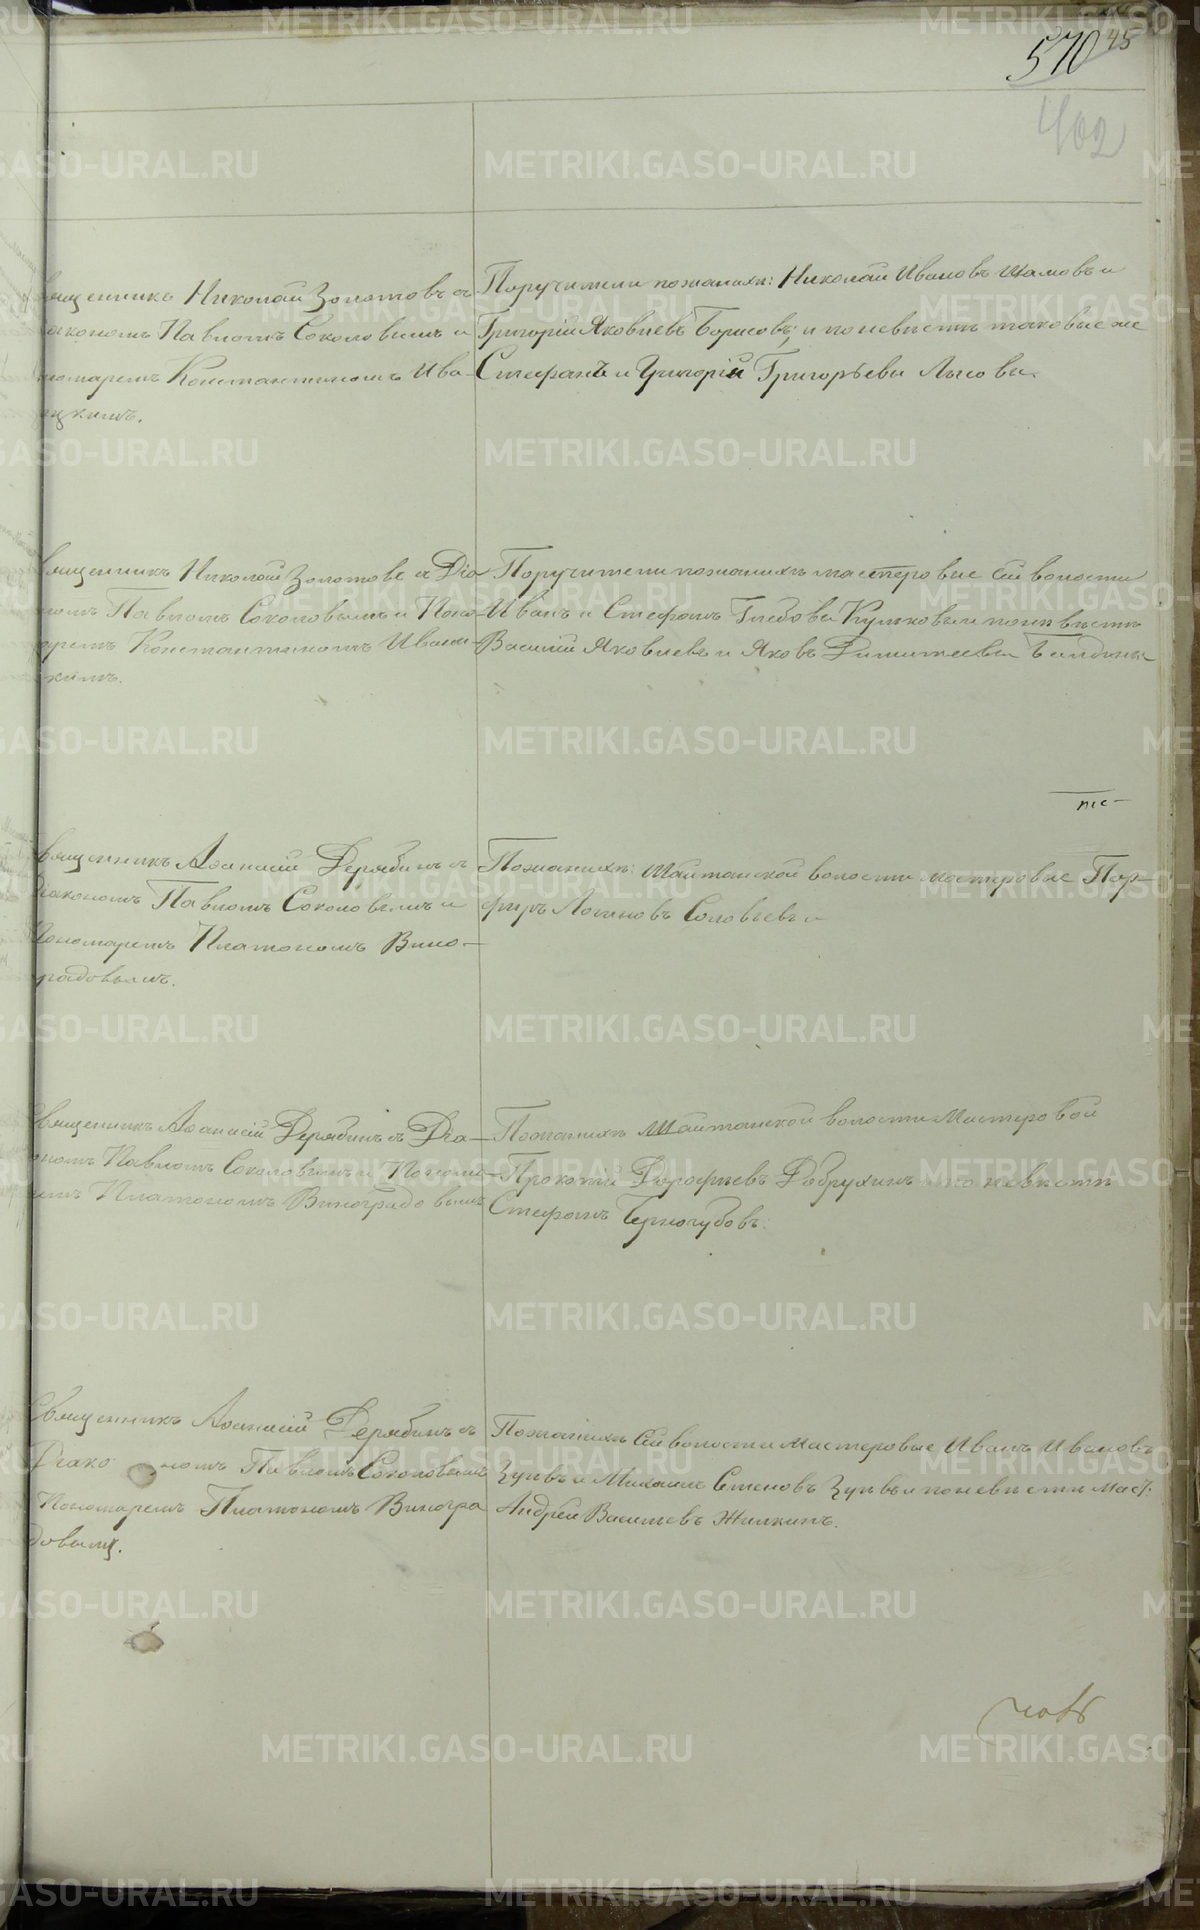 570 45
402
священникъ Николай Золотовъ съ
діакономъ Павломъ Соколовымъ и
пономаремъ Константиномъ Ива-
ицкимъ.
Поручители по женихѣ: Николай Ивановъ Шамовъ и
Григорій Яковлевъ Борисовъ; и по невѣстѣ таковые же
Стефанъ и Григорій Григорьевы Лысовы.
священникъ Николай Золотовъ съ Діа
номъ Павломъ Соколовымъ и Поно-
аремъ Константиномъ Ивани-
кимъ.
Поручители по женихѣ мастеровые сей волости
Иванъ и Стефанъ Глебовы Кулковы и по невѣстѣ
Василій Яковлевъ и Яковъ Дими
священникъ Аѳанасій Дерябинъ съ
Діакономъ Павломъ Соколовымъ и
Пономаремъ Платономъ Вино-
градовымъ.
По женихѣ: Шайтанской волости мастеровые Пор-
фиръ Логиновъ Соловьевъ и
священникъ Аѳанасій Дерябинъ съ Діа-
ономъ Павломъ Соколовымъ и Понома-
емъ Платономъ Виноградовымъ
По женихѣ Шайтанской волости Мастеровой
Прокопій Дорофеевъ Добрухинъ по невѣстѣ
Стефанъ Черногубовъ.
Священникъ Аѳанасій Дерябинъ съ
Діакономъ Павломъ Соколовымъ
Пономаремъ Платономъ Виногра
довымъ.
По женихѣ сей волости Мастеровые Иванъ Ивановъ
Зуевъ и Михаилъ Зуевъ и по невѣстѣ Мас.
Андрей Васильевъ Жилкинъ.
METRIKI.GASO-URAL.RU